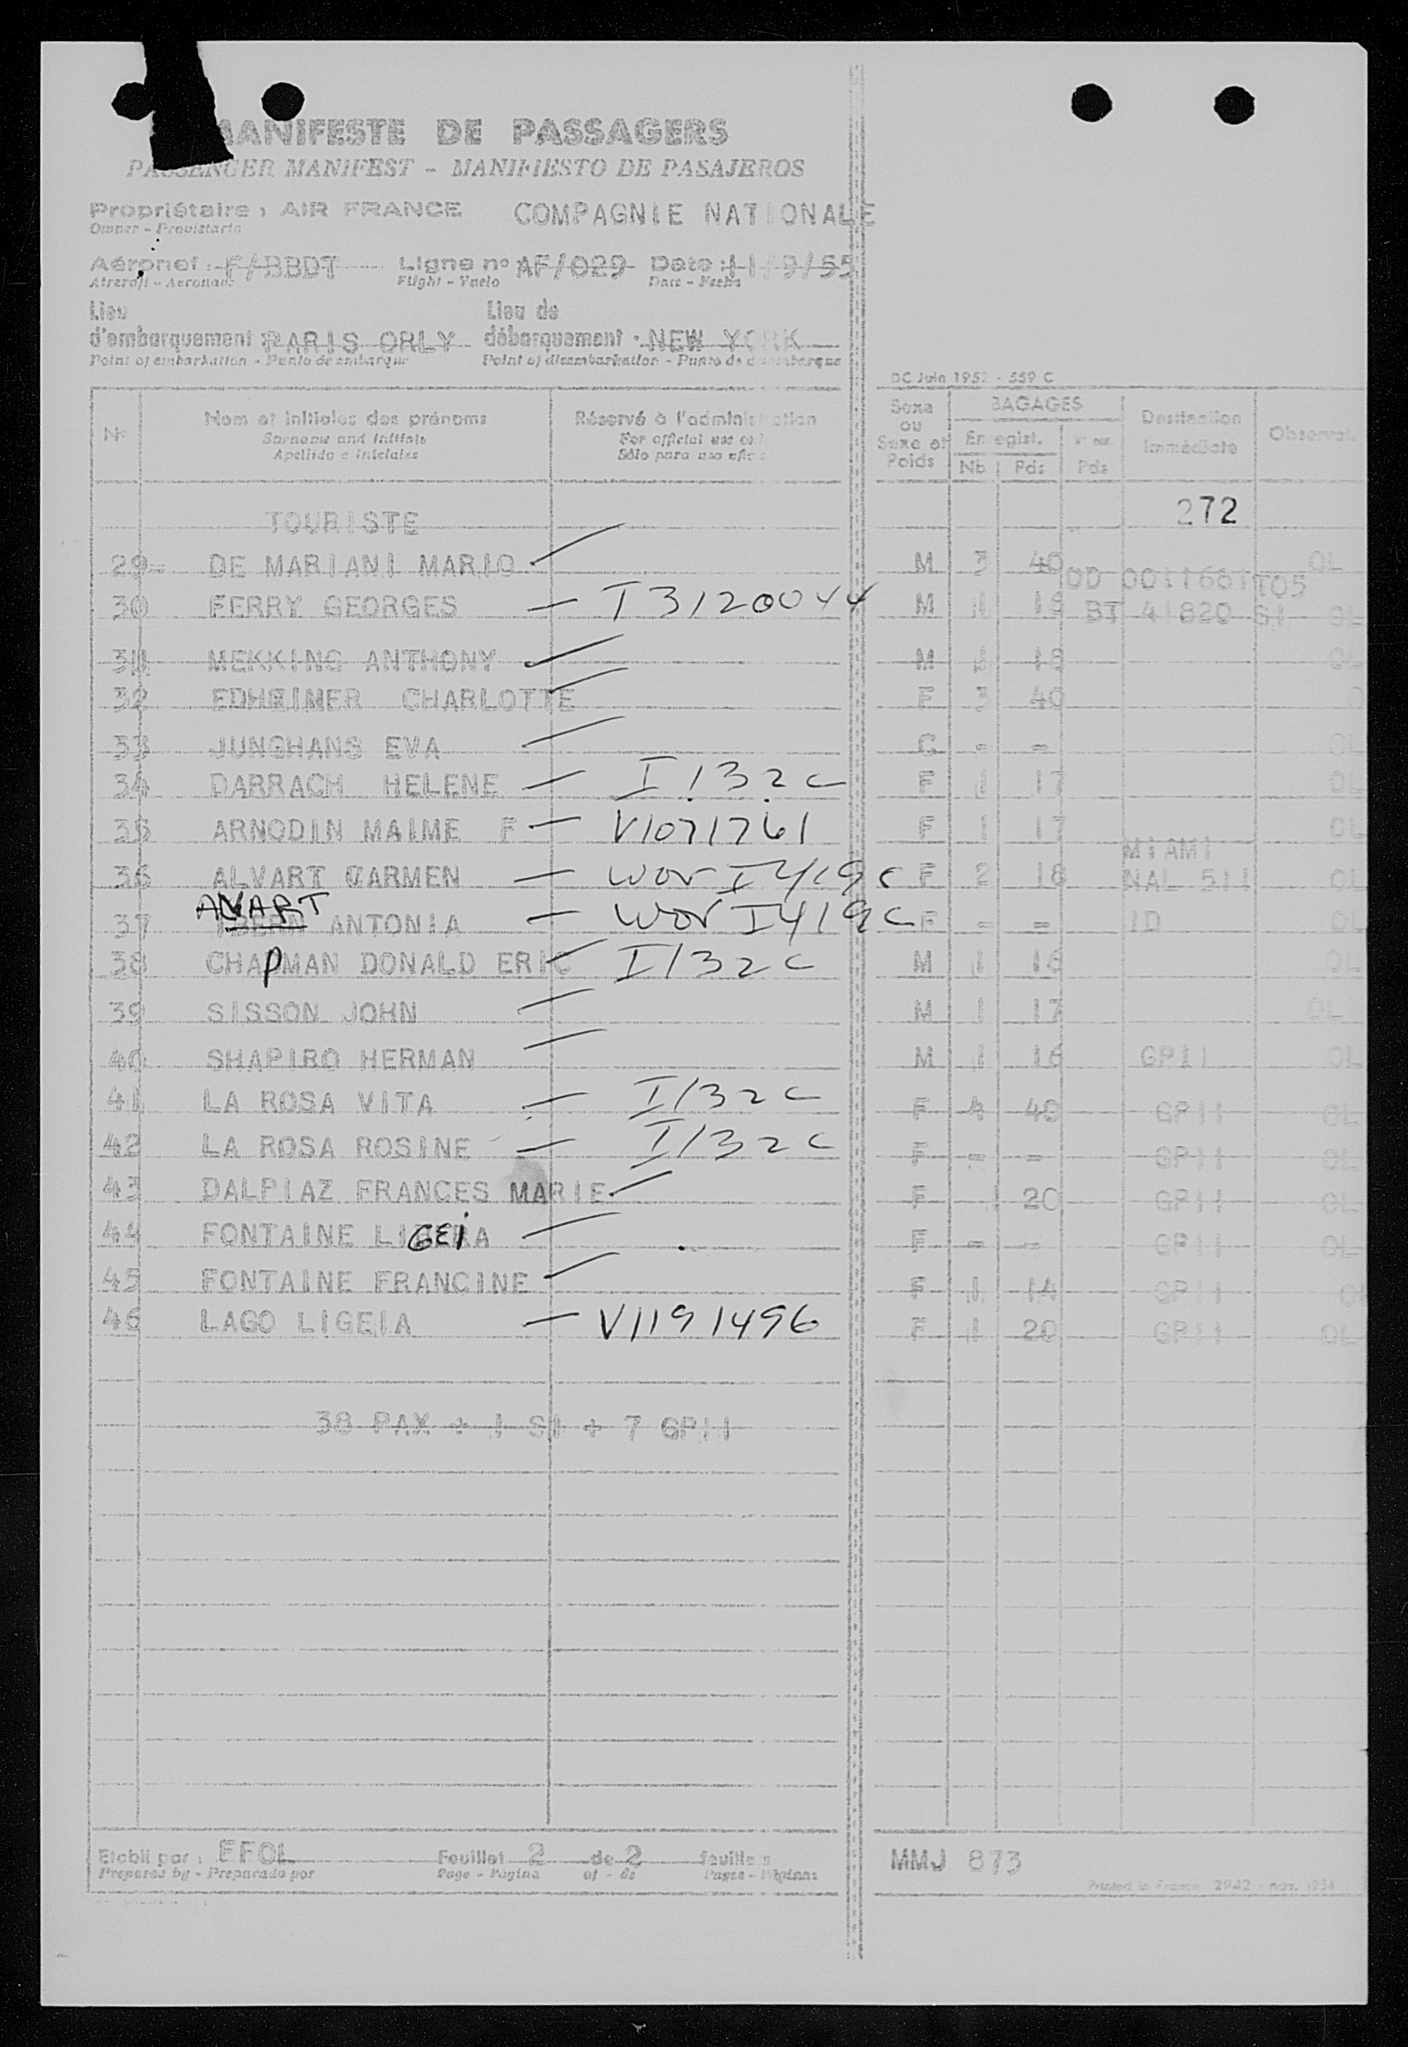 MANIFESTE DE PASSAGERS
PASSENGER MANIFEST - MANIFIESTO DE PASAJEROS
Propriétaire : AIR FRANCE COMPAGNIE NATIONALE
Owner - Propietario
Aéronef : F/BBDT Ligne no AF/029 Date : 11/9/55
Aircraft - Aeronave Flight - Vuelo Date - Fecha
Lieu Lieu de
d'embarquement : PARIS ORLY débarquement : NEW YORK
Point of embarkation - Punto de embarque Point of disembarkation - Punto de
DC Juin 1952 - 559 C
No Nom et initiales des prénoms Réservé à l'administration Sexe ou Sexe et Poids BAGAGES Destination immédiate Observat.
Surname and initials For official use
Apellido e iniciales Sólo para uso
Enregist. Nb Pds Pds
TOURISTE 272
29 DE MARIANI MARIO M 3 40 OL
OD 0011661T05
30 FERRY GEORGES — I3120044 M 1 18 BT 41820 S1 OL
31 MEKKING ANTHONY M 1 18 OL
32 EDHEIMER CHARLOTTE F 3 40
33 JUNGHANS EVA C - = OL
34 DARRACH HELENE — I132c F 1 17 OL
35 ARNODIN MAIME F — V1071761 F 1 17 OL
MIAMI
36 ALVART CARMEN — wov I419c F 2 18 NAL 511 OL
ALVART
37 ANTONIA — wov I419c F = = ID OL
38 CHAPMAN DONALD ERIC I132c M 1 16 OL
39 SISSON JOHN M 1 17 OL
40 SHAPIRO HERMAN M 1 16 GP11 OL
41 LA ROSA VITA — I132c F 4 40 GP11 OL
42 LA ROSA ROSINE — I132c F = = GP11 OL
43 DALPIAZ FRANCES MARIE F 20 GP11 OL
44 FONTAINE LIGEIA F = = GP11 OL
45 FONTAINE FRANCINE F 1 14 GP11
46 LAGO LIGEIA — V1191496 F 1 20 GP11 OL
38 PAX + 1 S1 + 7 GP11
Etabli par : FFOL Feuillet 2 de 2 feuillets MMJ 873
Prepared by - Preparado por Page - Página of - de Pages - Páginas
Printed in France